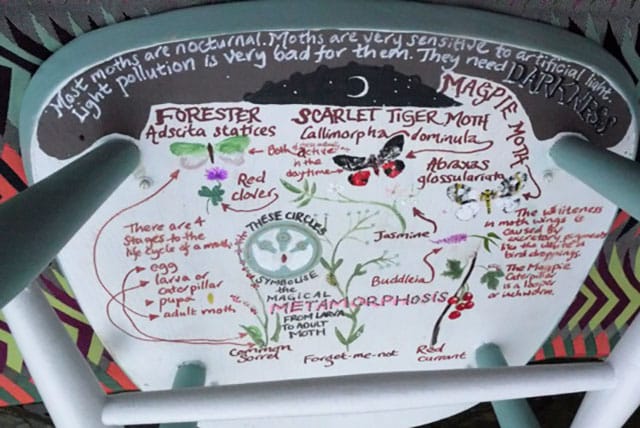 Most moths are nocturnal. Moths are very sensitive to artificial light.
Light pollution is very bad for them. They need DARKNESS
FORESTER
Adscita statices
SCARLET TIGER MOTH
Callimorpha dominula
MAGPIE MOTH
Abraxas
glossulariata
Both
active
in the
daytime
Red
clover
There are 4
stages to the
life cycle of a moth
egg
larva or
caterpillar
pupa
adult moth
THESE CIRCLES
SYMBOLISE
THE
MAGICAL
METAMORPHOSIS
FROM LARVA
TO ADULT
MOTH
Jasmine
Buddleia
The whiteness
in moth wings is
caused by
excretory pigments
bird droppings.
The Magpie
Caterpillar
is a looper
or inchworm.
Common
Sorrel
Forget-me-not
Red
currant